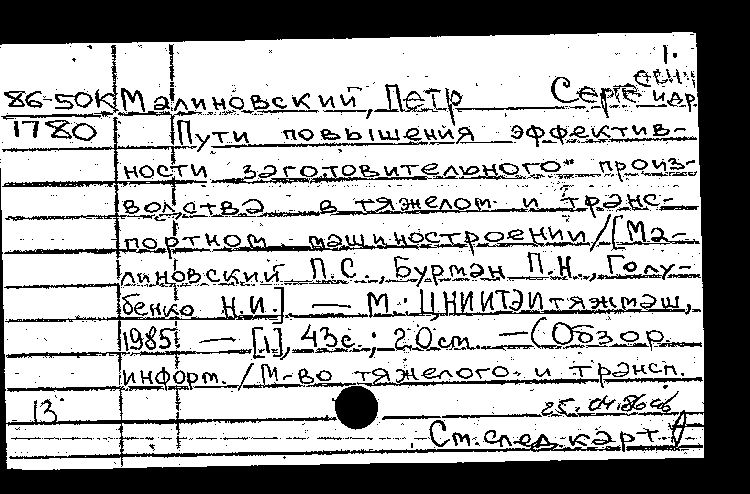 1.
86-50К Малиновский, Петр Сергеевич и др.
1780 Пути повышения эффектив-
ности заготовительного произ-
водства в тяжелом и транс-
портном машиностроении/[Ма-
линовский П.С., Бурман П.Н., Голу-
бенко Н.И.] — М.: ЦНИИТЭИтяжмаш,
1985 — [1], 43с.; 20см. —(Обзор.
информ. / М-во тяжелого и трансп.
13 25.04.86
См. след. карт.